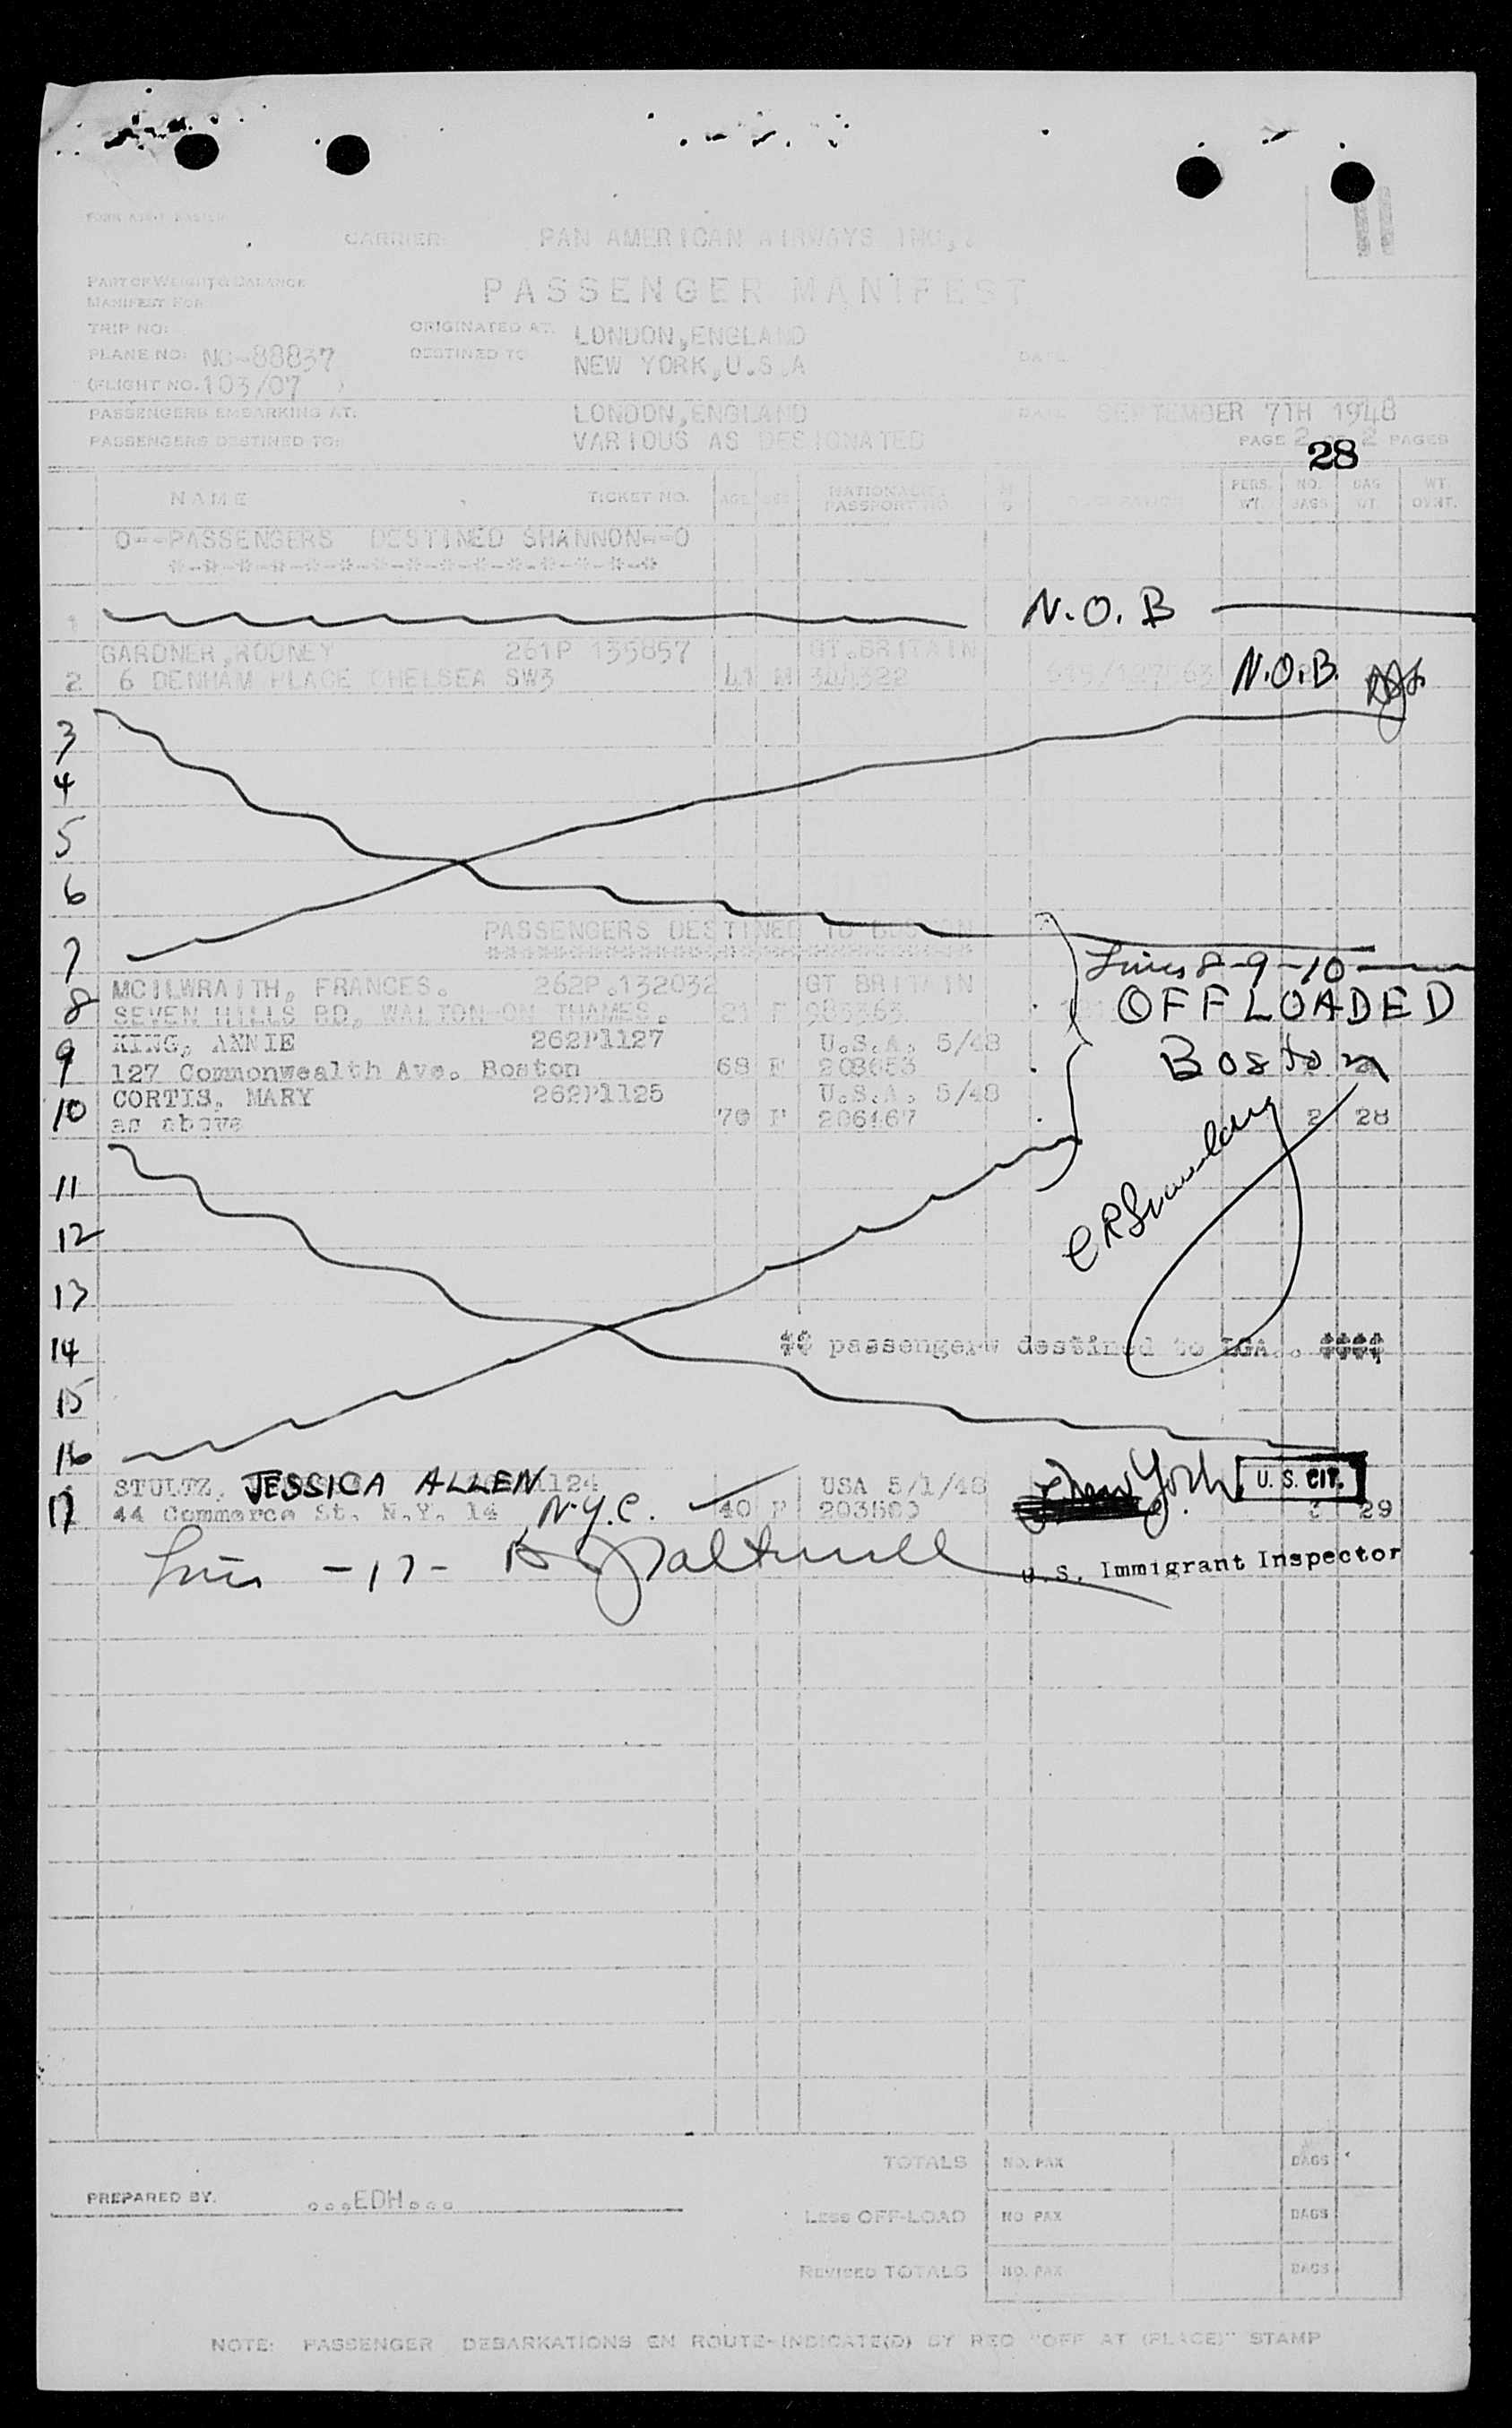 11
CARRIER: PAN AMERICAN AIRWAYS INC.,
PART OF WEIGHT & BALANCE
MANIFEST FOR:
PASSENGER MANIFEST
TRIP NO:
ORIGINATED AT: LONDON,ENGLAND
PLANE NO: NC-88837
DESTINED TO NEW YORK,U.S.A
DATE
(FLIGHT NO. 103/07 )
PASSENGERS EMBARKING AT: LONDON,ENGLAND DATE SEPTEMBER 7TH 1948
PASSENGERS DESTINED TO: VARIOUS AS DESIGNATED PAGE 2 OF 2 PAGES
28
NAME TICKET NO. AGE SEX NATIONALITY PASSPORT NO. PERS. WT. NO. BAGS BAG WT. WT. OVHT.
O--PASSENGERS DESTINED SHANNON--O
*-*-*-*-*-*-*-*-*-*-*-*-*-*-*
1 N.O.B
GARDNER,RODNEY 261P 135857 GT.BRITAIN
2 6 DENHAM PLACE CHELSEA SW3 41 M 344322 N.O.B.
3
4
5
6
PASSENGERS DESTINED TO BOSTON
7
Lines 8-9-10
MCILWRAITH, FRANCES. 262P.132032 GT BRITAIN
8 SEVEN HILLS RD, WALTON-ON THAMES. 21 F 985363 OFFLOADED
9 KING, ANNIE 262P1127 U.S.A. 5/48
127 Commonwealth Ave. Boston 68 F 203653 Boston
10 CORTIS, MARY 262P1125 U.S.A. 5/48
as above 70 F 206467 2 28
11
12
13
14 passengerw destined to LGA..
15
16
STULTZ, JESSICA ALLEN 1124 USA 5/1/48 New York U.S. CIT.
17 44 Commerce St. N.Y. 14 N.Y.C. 40 F 203569 29
Line -17-
U.S. Immigrant Inspector
TOTALS NO. PAX BAGS
PREPARED BY. ...EDH...
Less OFF-LOAD NO PAX BAGS
REVISED TOTALS NO. PAX BAGS
NOTE: PASSENGER DEBARKATIONS EN ROUTE-INDICATE(D) BY RED "OFF AT (PLACE)" STAMP